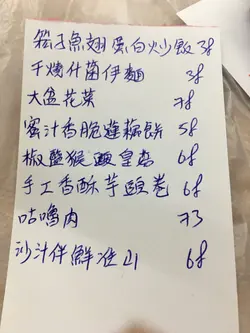 筷子魚翅蛋白炒飯 38
干燒什菌伊麵 38
大盆花菜 78
蜜汁香脆蓮藕餅 58
椒鹽猴頭皇菇 68
手工香酥芋頭卷 68
咕嚕肉 73
沙汁伴鮮淮山 68